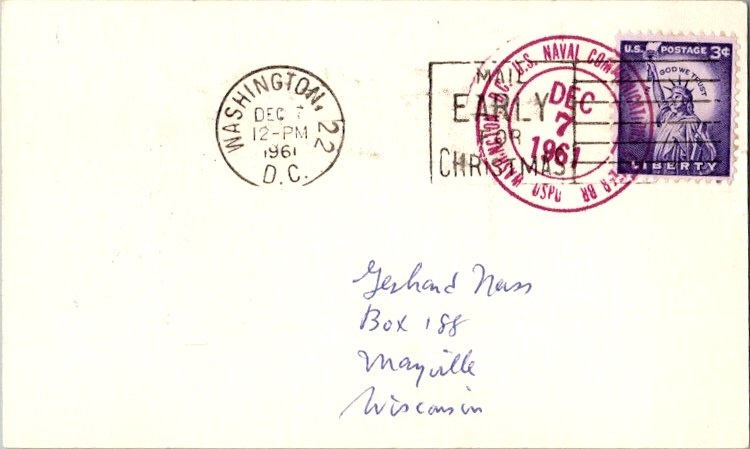 WASHINGTON, 22
DEC 7
12-PM
1961
D.C.
MAIL
EARLY
FOR
CHRISTMAS
WASHINGTON D.C. U.S. NAVAL
DEC
7
1961
BR USPO
U.S. POSTAGE 3¢
IN GOD WE TRUST
LIBERTY
Gerhard Nass
Box 188
Mayville
Wisconsin